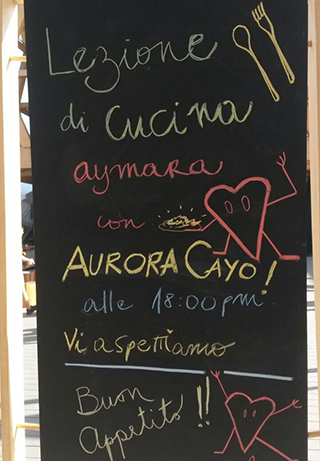 Lezione
di cucina
aymara
con
AURORA CAYO!
alle 18:00pm
Vi aspettiamo
Buon
Appetito!!